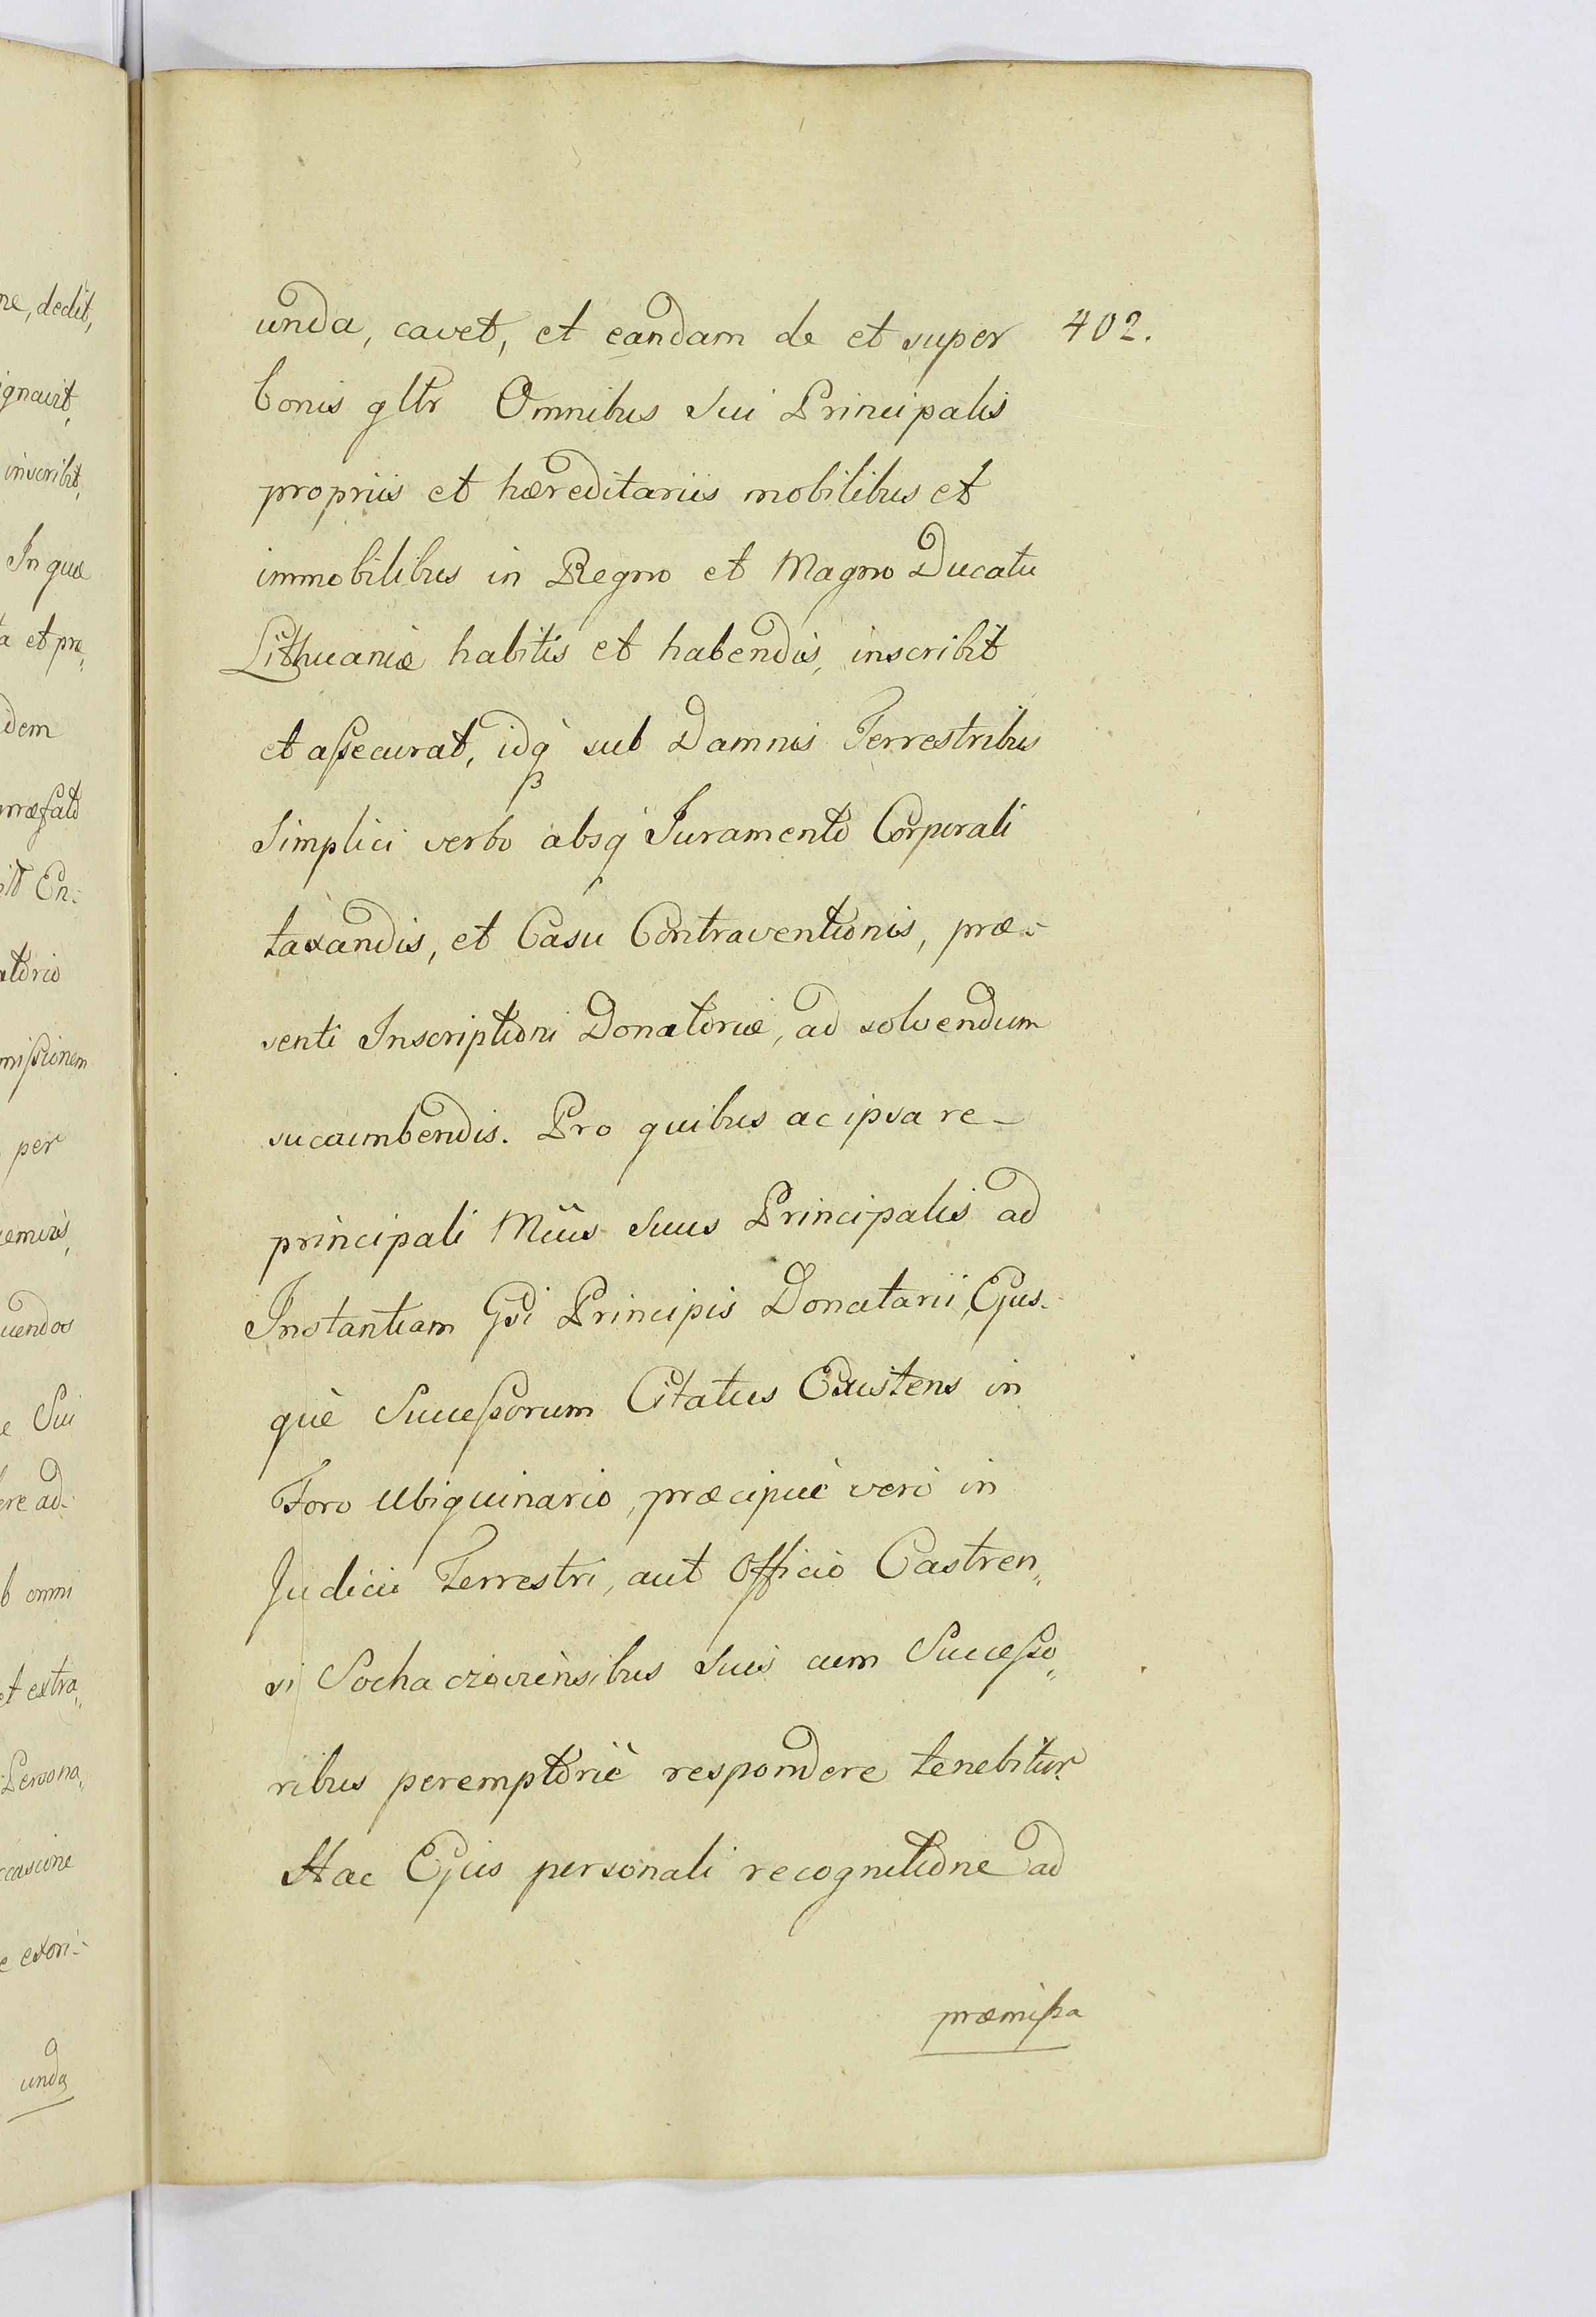 ne, dedit,
ignavit,
inscribit,
In quæ
ta et præ„
idem
præfato
En:
atorio
missionem
per
uendos
e Sui
ere ad-
b omni
et extra„
Persona„
ccasione
e exori-
unda
unda, cavet, et eandam de et super 402.
bonis gltr Omnibus Sui Principalis
propriis et hæreditariis mobilibus et
immobilibus in Regno et Magno Ducatu
Lithuaniæ habitis et habendis, inscribit
et assecurat, idq̀ sub Damnis Terrestribus
Simplici verbo absq̀ Juramento Corporali
taxandis, et Casu Contraventionis, præ-
senti Inscriptioni Donatoriæ, ad solvendum
sucumbendis. Pro quibus ac ipsa re-
principali Mcus Suus Principalis ad
Instantiam Gsi Principis Donatarii, Ejus-
què Successorum Citatus Existens in
Foro Ubiquinario, præcipuè verò in
Judicio Terrestri, aut Officio Castren„
si Sochaczoviensibus Suis cum Successo„
ribus peremptoriè respondere tenebitur.
Hac Ejus personali recognitione ad
præmissa